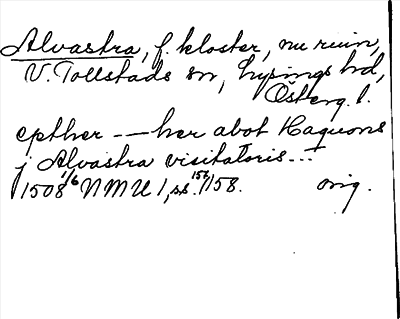 Alvastra, f. kloster, nu ruin,
V. Tollstads sn, Lysings hd,
Österg. l.
epther –– her abot Haquons
j Alvastra visitatoris...
1508 1/6 NMU 1, ss. 157/158. orig.